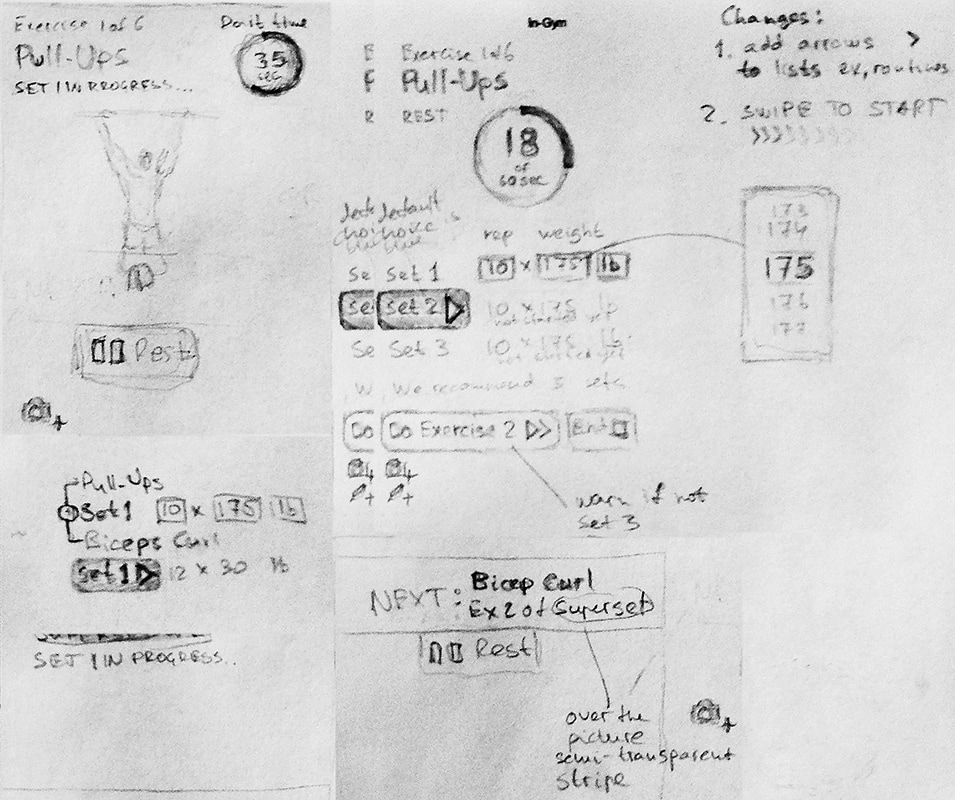 In-Gym
Exercise 1 of 6
Pull-Ups
SET 1 IN PROGRESS...
Don't time
35
SEC
Rest
Pull-Ups
Set 1 10 x 175 lb
Biceps Curl
Set 1 12 x 30 lb
SET 1 IN PROGRESS..
E Exercise 1 of 6
F Pull-Ups
R REST
18
of
60 sec
default
choice is
rep weight
Se Set 1 10 x 175 lb
Se Set 2 10 x 175 lb
not started yet
Se Set 3 10 x 175 lb.
not started yet
W, We recommend 3 sets
Go Go Exercise 2 End
warn if not
Set 3
NEXT: Bicep Curl
Ex 2 of Superset
Rest
over the
picture
semi-transparent
stripe
Changes:
1. add arrows >
to lists ex, routines
2. SWIPE TO START
>>>>>>>>
173
174
175
176
177